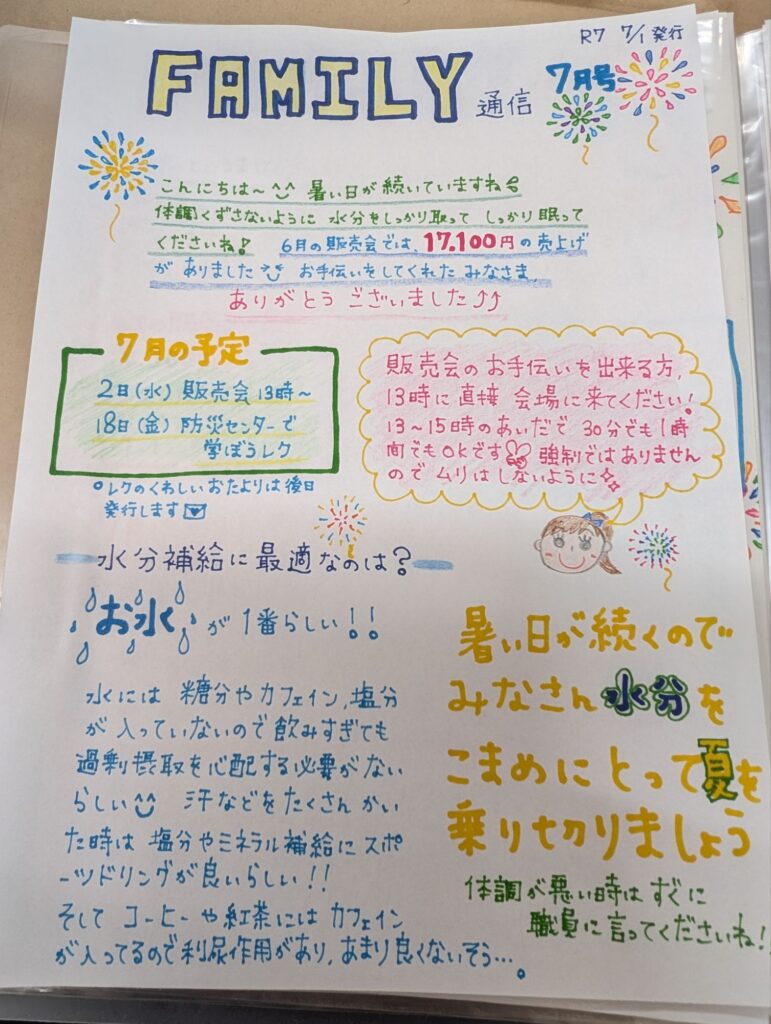 R7 7/1発行
FAMILY 通信
7月号
こんにちは~^^ 暑い日が続いていますね
体調くずさないように 水分をしっかり取って しっかり眠って
くださいね! 6月の販売会では、17,100円の売上げ
が ありました お手伝いをしてくれた みなさま、
ありがとう ございました⤴⤴
7月の予定
2日(水) 販売会 13時~
18日(金) 防災センターで
学ぼうレク
○レクのくわしいおたよりは後日
発行します
販売会のお手伝いを出来る方、
13時に直接 会場に来てください!
13~15時のあいだで 30分でも1時
間でもokです 強制ではありません
ので ムリは しないように
水分補給に最適なのは?
お水 が 1番らしい!!
水には 糖分やカフェイン、塩分
が 入っていないので飲みすぎても
過剰摂取を心配する必要がない
らしい 汗などをたくさん かい
た時は 塩分やミネラル補給に スポ
ーツドリングが良いらしい!!
そして コーヒーや紅茶には カフェイン
が入ってるので利尿作用があり、あまり良くないそう…。
暑い日が続くので
みなさん水分を
こまめにとって夏を
乗り切りましょう
体調が悪い時は すぐに
職員に言ってくださいね!